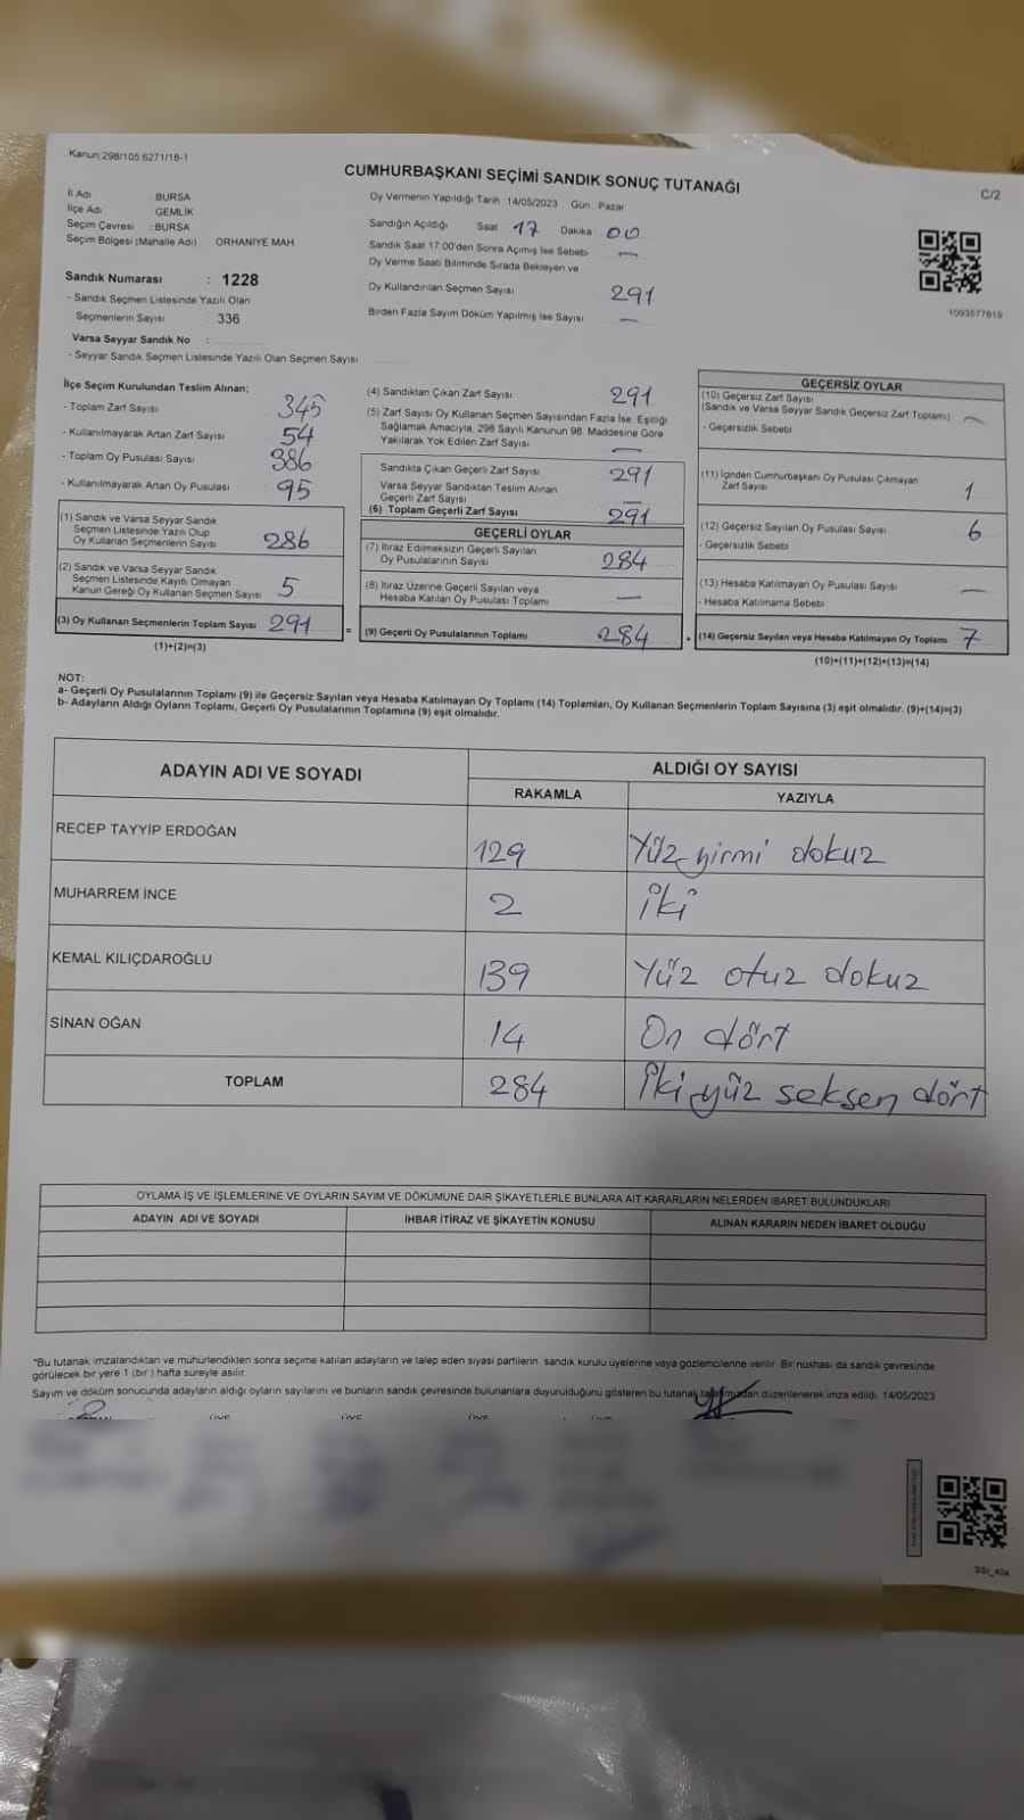 Kanun:298/105 6271/18-1
CUMHURBAŞKANI SEÇİMİ SANDIK SONUÇ TUTANAĞI
C/2
İl Adı BURSA
İlçe Adı GEMLİK
Seçim Çevresi : BURSA
Seçim Bölgesi (Mahalle Adı) ORHANİYE MAH
Oy Vermenin Yapıldığı Tarih : 14/05/2023 Gün : Pazar
Sandığın Açıldığı Saat 17 Dakika 00
Sandık Saat 17:00'den Sonra Açılmış İse Sebebi —
Oy Verme Saati Bitiminde Sırada Bekleyen ve
Oy Kullandırılan Seçmen Sayısı 291
Birden Fazla Sayım Döküm Yapılmış İse Sayısı —
Sandık Numarası : 1228
- Sandık Seçmen Listesinde Yazılı Olan
Seçmenlerin Sayısı 336
Varsa Seyyar Sandık No :
- Seyyar Sandık Seçmen Listesinde Yazılı Olan Seçmen Sayısı
İlçe Seçim Kurulundan Teslim Alınan:
- Toplam Zarf Sayısı 345
- Kullanılmayarak Artan Zarf Sayısı 54
- Toplam Oy Pusulası Sayısı 386
- Kullanılmayarak Artan Oy Pusulası 95
(1) Sandık ve Varsa Seyyar Sandık
Seçmen Listesinde Yazılı Olup
Oy Kullanan Seçmenlerin Sayısı 286
(2) Sandık ve Varsa Seyyar Sandık
Seçmen Listesinde Kayıtlı Olmayan
Kanun Gereği Oy Kullanan Seçmen Sayısı 5
(3) Oy Kullanan Seçmenlerin Toplam Sayısı 291
(1)+(2)=(3)
(4) Sandıktan Çıkan Zarf Sayısı 291
(5) Zarf Sayısı Oy Kullanan Seçmen Sayısından Fazla İse, Eşitliği
Sağlamak Amacıyla, 298 Sayılı Kanunun 98. Maddesine Göre
Yakılarak Yok Edilen Zarf Sayısı —
Sandıkta Çıkan Geçerli Zarf Sayısı 291
Varsa Seyyar Sandıktan Teslim Alınan
Geçerli Zarf Sayısı —
(6) Toplam Geçerli Zarf Sayısı 291
GEÇERLİ OYLAR
(7) İtiraz Edilmeksizin Geçerli Sayılan
Oy Pusulalarının Sayısı 284
(8) İtiraz Üzerine Geçerli Sayılan veya
Hesaba Katılan Oy Pusulası Toplamı —
= (9) Geçerli Oy Pusulalarının Toplamı 284
GEÇERSİZ OYLAR
(10) Geçersiz Zarf Sayısı
(Sandık ve Varsa Seyyar Sandık Geçersiz Zarf Toplamı) —
- Geçersizlik Sebebi
(11) İçinden Cumhurbaşkanı Oy Pusulası Çıkmayan
Zarf Sayısı 1
(12) Geçersiz Sayılan Oy Pusulası Sayısı 6
- Geçersizlik Sebebi
(13) Hesaba Katılmayan Oy Pusulası Sayısı —
- Hesaba Katılmama Sebebi
+ (14) Geçersiz Sayılan veya Hesaba Katılmayan Oy Toplamı 7
(10)+(11)+(12)+(13)=(14)
NOT:
a- Geçerli Oy Pusulalarının Toplamı (9) ile Geçersiz Sayılan veya Hesaba Katılmayan Oy Toplamı (14) Toplamları, Oy Kullanan Seçmenlerin Toplam Sayısına (3) eşit olmalıdır. (9)+(14)=(3)
b- Adayların Aldığı Oyların Toplamı, Geçerli Oy Pusulalarının Toplamına (9) eşit olmalıdır.
ADAYIN ADI VE SOYADI ALDIĞI OY SAYISI
RAKAMLA YAZIYLA
RECEP TAYYİP ERDOĞAN 129 Yüz yirmi dokuz
MUHARREM İNCE 2 iki
KEMAL KILIÇDAROĞLU 139 Yüz otuz dokuz
SİNAN OĞAN 14 On dört
TOPLAM 284 İki yüz seksen dört
OYLAMA İŞ VE İŞLEMLERİNE VE OYLARIN SAYIM VE DÖKÜMÜNE DAİR ŞİKAYETLERLE BUNLARA AİT KARARLARIN NELERDEN İBARET BULUNDUKLARI
ADAYIN ADI VE SOYADI İHBAR İTİRAZ VE ŞİKAYETİN KONUSU ALINAN KARARIN NEDEN İBARET OLDUĞU
*Bu tutanak imzalandıktan ve mühürlendikten sonra seçime katılan adayların ve talep eden siyasi partilerin, sandık kurulu üyelerine veya gözlemcilerine verilir. Bir nüshası da sandık çevresinde
görülecek bir yere 1 (bir) hafta süreyle asılır.
Sayım ve döküm sonucunda adayların aldığı oyların sayılarını ve bunların sandık çevresinde bulunanlara duyurulduğunu gösteren bu tutanak düzenlenerek imza edildi. 14/05/2023